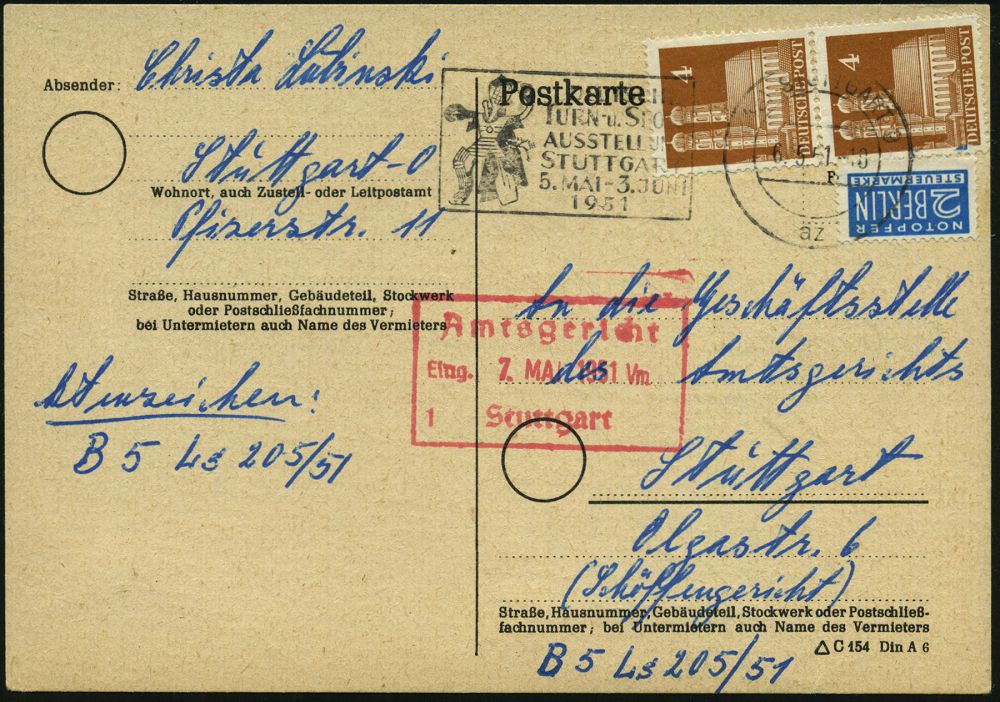 Absender: Christa Lubinski
Stuttgart-O
Wohnort, auch Zustell- oder Leitpostamt
Pfizerstr. 11
Straße, Hausnummer, Gebäudeteil, Stockwerk
oder Postschließfachnummer;
bei Untermietern auch Name des Vermieters
Aktenzeichen:
B 5 Ls 205/51
Postkarte
TURN- u. SPO
AUSSTELLUN
STUTTGAR
5. MAI - 3. JUNI
1951
4
DEUTSCHE POST
4
DEUTSCHE POST
6.5.51.-18
az
NOTOPFER
2 BERLIN
STEUERMARKE
Amtsgericht
Eing. 7. MAI 1951 Vm
1 Stuttgart
An die Geschäftsstelle
des Amtsgerichts
Stuttgart
Olgastr. 6
(Schöffengericht)
Straße, Hausnummer, Gebäudeteil, Stockwerk oder Postschließ-
fachnummer; bei Untermietern auch Name des Vermieters
C 154 Din A 6
B 5 Ls 205/51